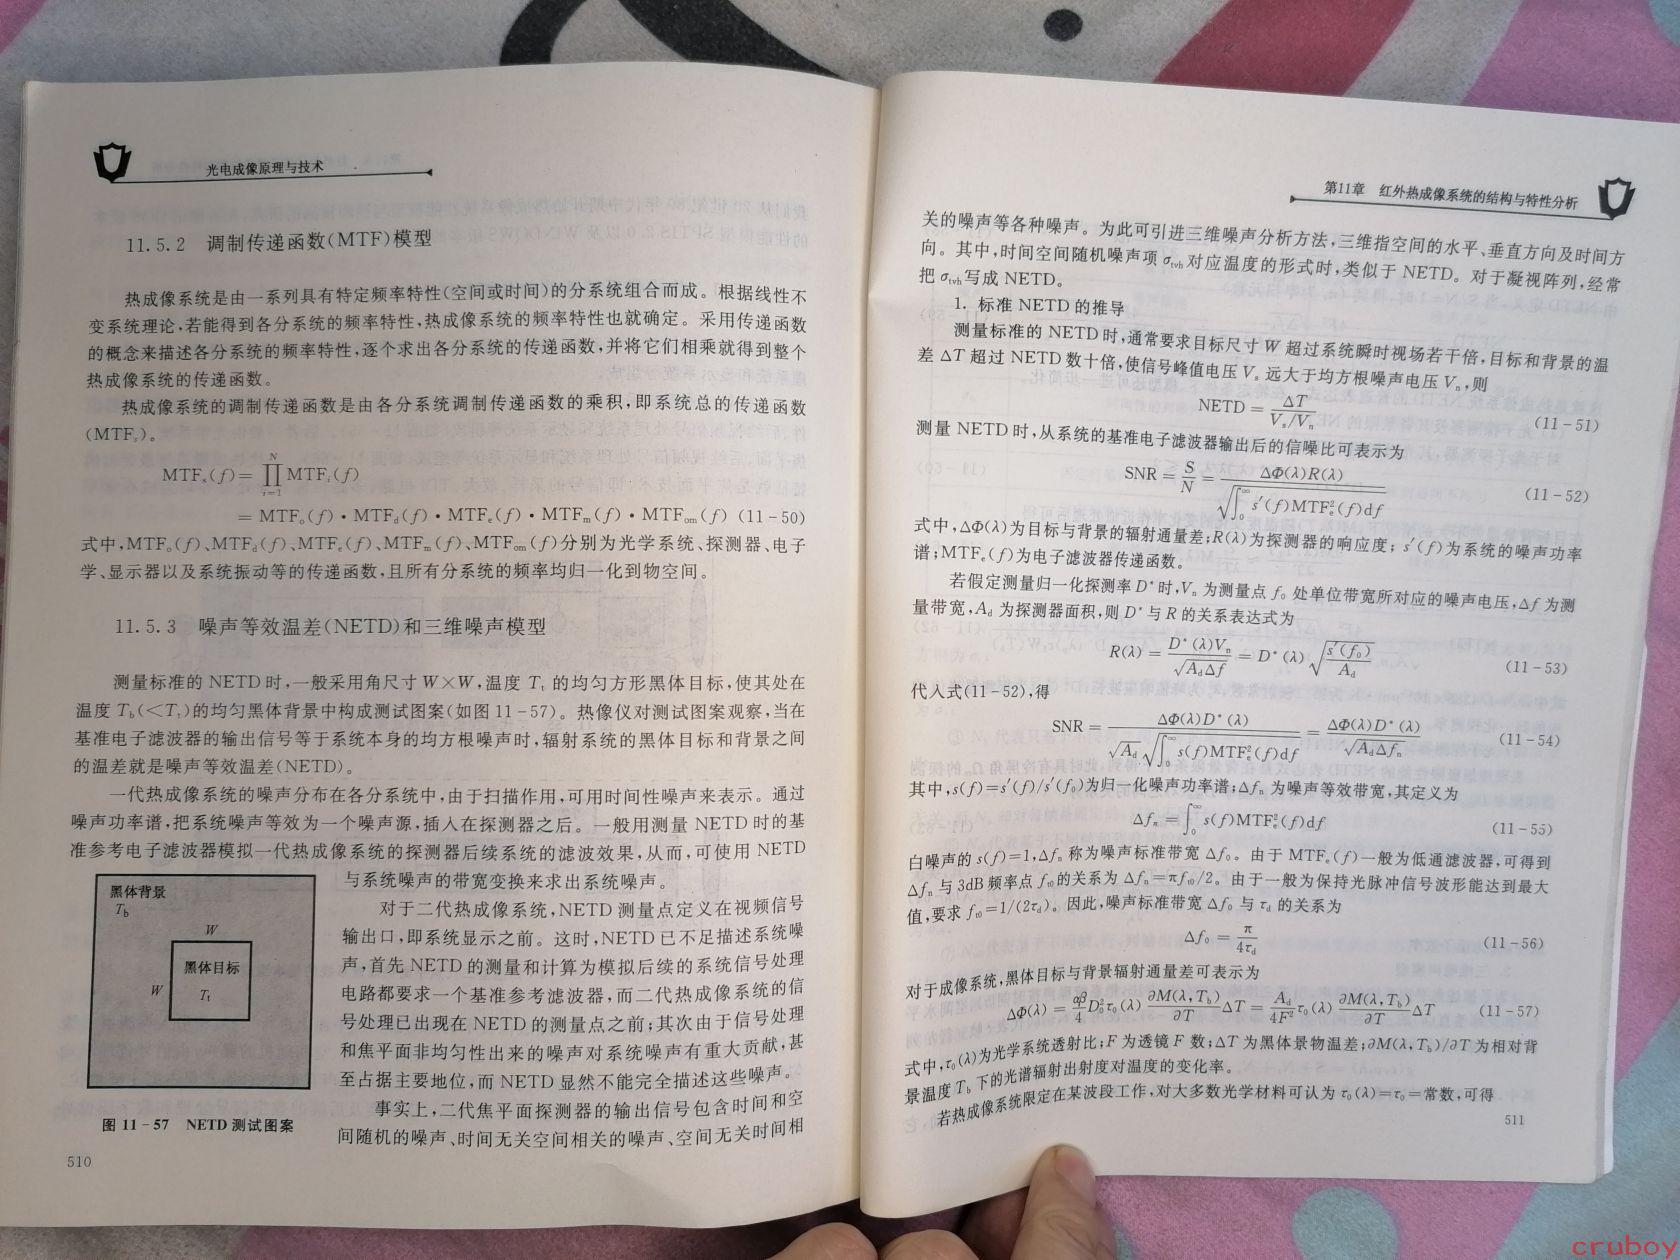 光电成像原理与技术
11.5.2 调制传递函数(MTF)模型
热成像系统是由一系列具有特定频率特性(空间或时间)的分系统组合而成。根据线性不
变系统理论,若能得到各分系统的频率特性,热成像系统的频率特性也就确定。采用传递函数
的概念来描述各分系统的频率特性,逐个求出各分系统的传递函数,并将它们相乘就得到整个
热成像系统的传递函数。
热成像系统的调制传递函数是由各分系统调制传递函数的乘积,即系统总的传递函数
(MTFₛ)。
MTFₛ(f)=∏_{i=1}^{N} MTF_i(f)
= MTF_o(f)·MTF_d(f)·MTF_e(f)·MTF_m(f)·MTF_om(f) (11-50)
式中,MTF_o(f)、MTF_d(f)、MTF_e(f)、MTF_m(f)、MTF_om(f)分别为光学系统、探测器、电子
学、显示器以及系统振动等的传递函数,且所有分系统的频率均归一化到物空间。
11.5.3 噪声等效温差(NETD)和三维噪声模型
测量标准的 NETD 时,一般采用角尺寸 W×W,温度 T_t 的均匀方形黑体目标,使其处在
温度 T_b(<T_t)的均匀黑体背景中构成测试图案(如图 11-57)。热像仪对测试图案观察,当在
基准电子滤波器的输出信号等于系统本身的均方根噪声时,辐射系统的黑体目标和背景之间
的温差就是噪声等效温差(NETD)。
一代热成像系统的噪声分布在各分系统中,由于扫描作用,可用时间性噪声来表示。通过
噪声功率谱,把系统噪声等效为一个噪声源,插入在探测器之后。一般用测量 NETD 时的基
准参考电子滤波器模拟一代热成像系统的探测器后续系统的滤波效果,从而,可使用 NETD
与系统噪声的带宽变换来求出系统噪声。
对于二代热成像系统,NETD 测量点定义在视频信号
输出口,即系统显示之前。这时,NETD 已不足描述系统噪
声,首先 NETD 的测量和计算为模拟后续的系统信号处理
电路都要求一个基准参考滤波器,而二代热成像系统的信
号处理已出现在 NETD 的测量点之前;其次由于信号处理
和焦平面非均匀性出来的噪声对系统噪声有重大贡献,甚
至占据主要地位,而 NETD 显然不能完全描述这些噪声。
事实上,二代焦平面探测器的输出信号包含时间和空
间随机的噪声、时间无关空间相关的噪声、空间无关时间相
黑体背景
T_b
W
黑体目标
W
T_t
图 11-57 NETD 测试图案
510
第11章 红外热成像系统的结构与特性分析
关的噪声等各种噪声。为此可引进三维噪声分析方法,三维指空间的水平、垂直方向及时间方
向。其中,时间空间随机噪声项 σ_tvh 对应温度的形式时,类似于 NETD。对于凝视阵列,经常
把 σ_tvh 写成 NETD。
1. 标准 NETD 的推导
测量标准的 NETD 时,通常要求目标尺寸 W 超过系统瞬时视场若干倍,目标和背景的温
差 ΔT 超过 NETD 数十倍,使信号峰值电压 Vₛ 远大于均方根噪声电压 Vₙ,则
NETD = ΔT/(Vₛ/Vₙ) (11-51)
测量 NETD 时,从系统的基准电子滤波器输出后的信噪比可表示为
SNR = S/N = ΔΦ(λ)R(λ)/√(∫₀^∞ s′(f)MTF_e²(f)df) (11-52)
式中,ΔΦ(λ)为目标与背景的辐射通量差;R(λ)为探测器的响应度;s′(f)为系统的噪声功率
谱;MTF_e(f)为电子滤波器传递函数。
若假定测量归一化探测率 D*时,Vₙ 为测量点 f₀ 处单位带宽所对应的噪声电压,Δf 为测
量带宽,A_d 为探测器面积,则 D*与 R 的关系表达式为
R(λ) = D*(λ)Vₙ/√(A_dΔf) = D*(λ)√(s′(f₀)/A_d) (11-53)
代入式(11-52),得
SNR = ΔΦ(λ)D*(λ)/(√A_d √(∫₀^∞ s(f)MTF_e²(f)df)) = ΔΦ(λ)D*(λ)/√(A_dΔfₙ) (11-54)
其中,s(f)=s′(f)/s′(f₀)为归一化噪声功率谱;Δfₙ 为噪声等效带宽,其定义为
Δfₙ = ∫₀^∞ s(f)MTF_e²(f)df (11-55)
白噪声的 s(f)=1,Δfₙ 称为噪声标准带宽 Δf₀。由于 MTF_e(f)一般为低通滤波器,可得到
Δfₙ 与 3dB 频率点 f_t0 的关系为 Δfₙ=πf_t0/2。由于一般为保持光脉冲信号波形能达到最大
值,要求 f_t0=1/(2τ_d)。因此,噪声标准带宽 Δf₀ 与 τ_d 的关系为
Δf₀ = π/(4τ_d) (11-56)
对于成像系统,黑体目标与背景辐射通量差可表示为
ΔΦ(λ) = (αβ/4)D₀²τ₀(λ) ∂M(λ,T_b)/∂T ΔT = A_d/(4F²) τ₀(λ) ∂M(λ,T_b)/∂T ΔT (11-57)
式中,τ₀(λ)为光学系统透射比;F 为透镜 F 数;ΔT 为黑体景物温差;∂M(λ,T_b)/∂T 为相对背
景温度 T_b 下的光谱辐射出射度对温度的变化率。
若热成像系统限定在某波段工作,对大多数光学材料可认为 τ₀(λ)=τ₀=常数,可得
511
cruboy